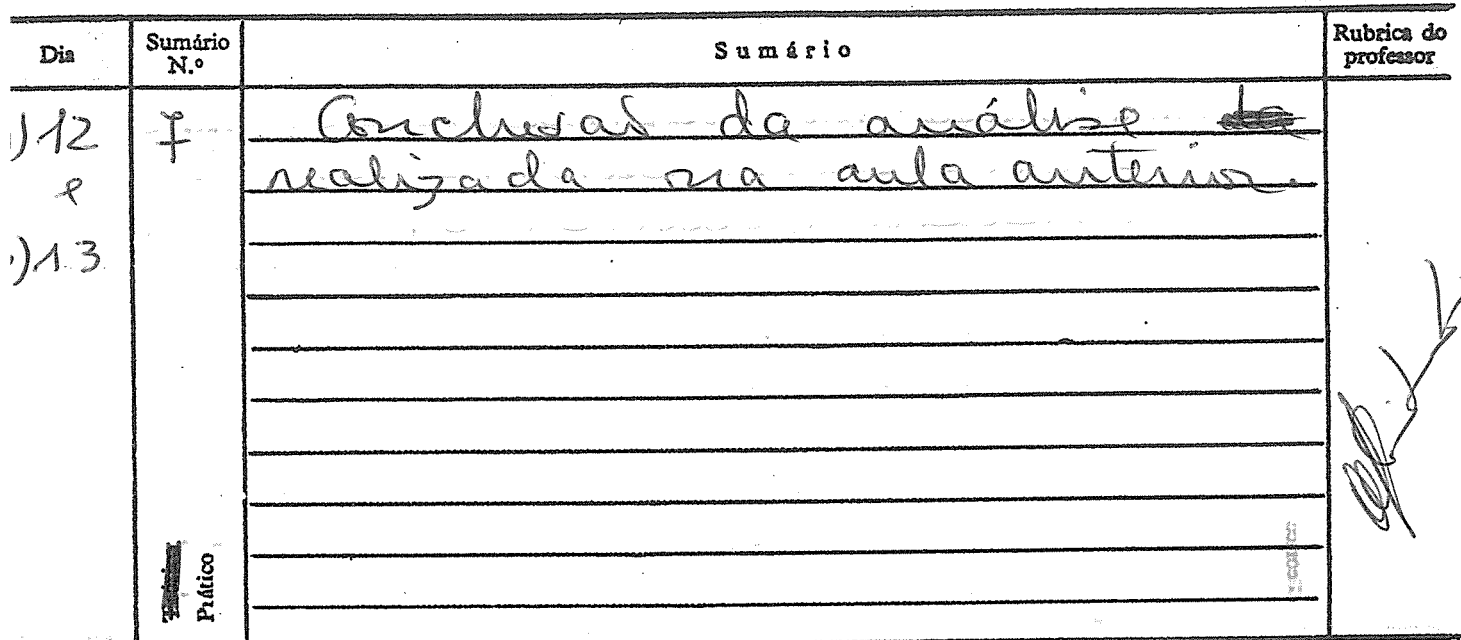 Dia
Sumário N.º
Sumário
Rubrica do professor
)12
7
Conclusão da análise
realizada na aula anterior.
e
)13
Prático